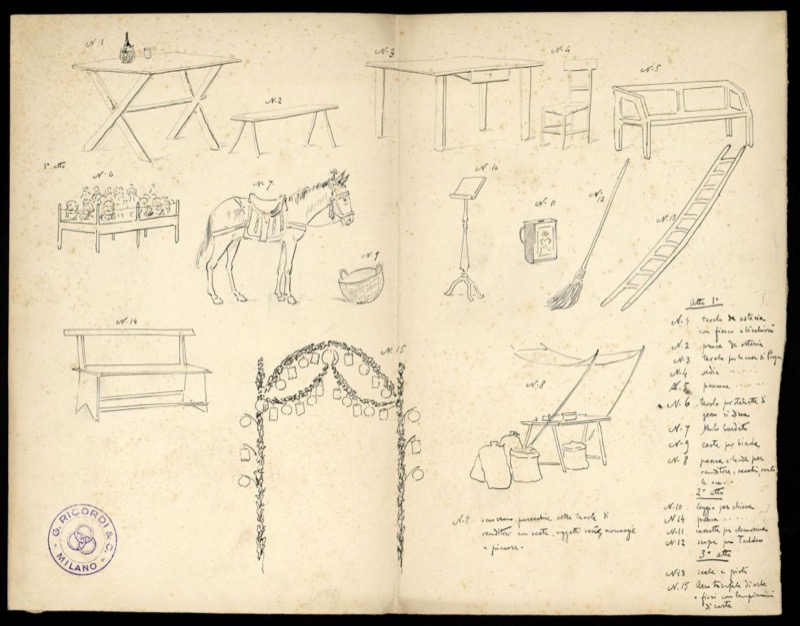 N. 1
N. 2
N. 3
N. 4
N. 5
1° atto
N. 6
N. 7
N. 9
N. 10
N. 11
N. 12
N. 13
N. 14
N. 15
N. 8
Atto 1°
N. 1 tavola da osteria
con fiasco e bicchieri
N. 2 panca da osteria
N. 3 tavola per la casa di
N. 4 sedia " " "
N. 5 pancone " " "
N. 6 tavolo per
di
N. 7 Mulo bardato
N. 9 cesta per biada
N. 8 panca e tenda per
venditore, sacchi,
2° atto
N. 10 leggio per chiesa
N. 14 panca " "
N. 11 cassetta per elemosina
N. 12 scopa per Taddeo
3° atto
N. 13 scala a pioli
N. 15 Arco trionfale di
e fiori con lampioncini
di carta
N. 8 occorrono parecchie altre tavole di
venditori con ceste, oggetti
a piacere.
G. RICORDI & C.
MILANO